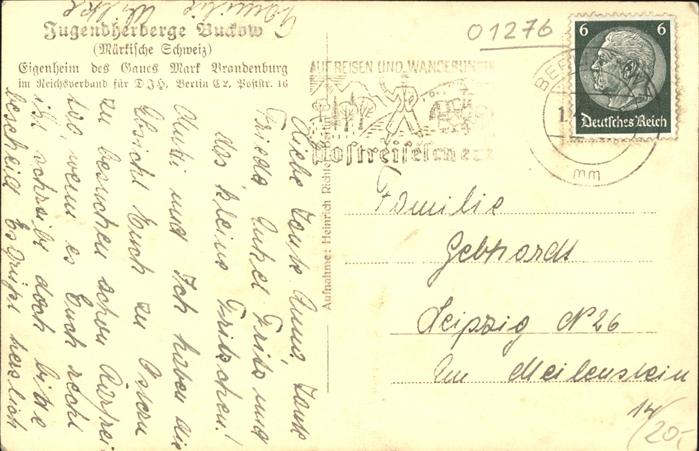 Familie
Jugendherberge Buckow
(Märkische Schweiz)
Eigenheim des Gaues Mark Brandenburg
im Reichsverband für DJH. Berlin C2, Poststr. 16
01276
AUF REISEN UND WANDERUNGEN
Postreisescheck
6 6
Deutsches Reich
BERLIN
mm
Aufnahme: Heinrich Richter, Berlin
Liebe Tante Anna, Tante
Frieda, Onkel Fritz und
das kleine Fritzchen!
Mutti und Ich haben die
Absicht Euch zu Ostern
zu besuchen schon
wenn es Euch recht
ist, schreibt doch bitte
bescheid. Es grüßt herzlich
Familie
Gebhardt
Leipzig N 26
Am Meilenstein
14/20,-